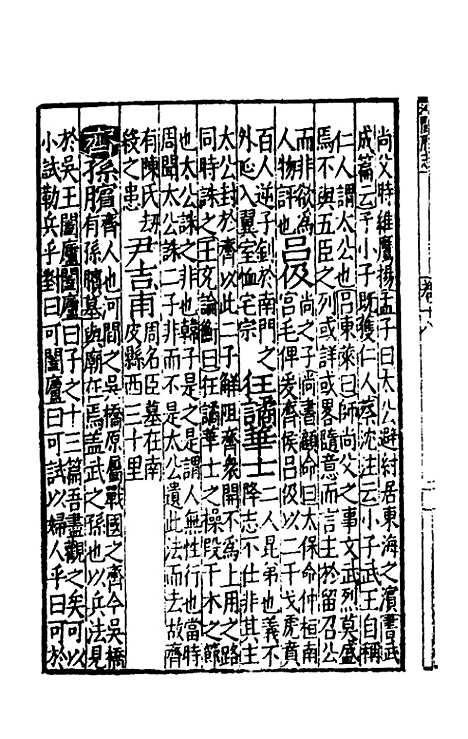 尚父時維鷹揚孟子曰太公避紂居東海之濵書武
成篇云予小子既獲仁人蔡沈註云小子武王自稱
仁人謂太公也呂東萊曰師尚父之事文武烈莫盛
焉不與五臣之列或詳或畧隨意而言主於留召公
而非欲為
人物評也呂伋尚之子尚書顧命曰太保命仲桓南
宫毛俾爰齊侯呂伋以二干戈虎賁
百人逆子釗於南門之
外延入翼室恤宅宗任譎華士二人昆弟也義不
降志不仕非其主
太公封於齊以此二子鮮阻齊衆開不為上用之路
同時誅之王充論衡曰狂譎華士之操段干木之節
也太公誅之非也韓子是之是謂人無性行也當時
周聞太公誅二子非而不是太公遺此法而去故齊
有陳氏刼
殺之患尹吉甫周名臣墓在南
皮縣西三十里
齊孫臏齊人也河間之吳橋原屬戰國之齊今吳橋
有孫臏墓與廟在焉盖武之孫也以兵法見
於吳王闔廬闔廬曰子之十三篇吾盡觀之矣可以
小試勒兵乎對曰可闔廬曰可試以婦人乎曰可於